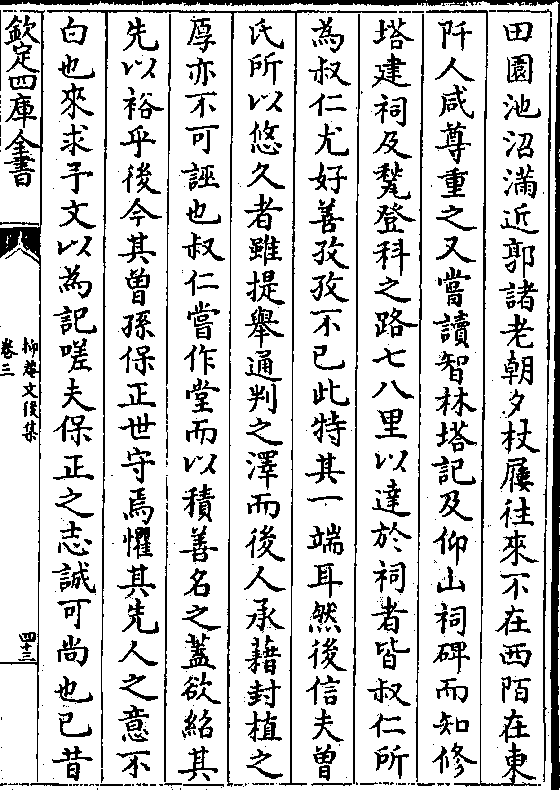 田園池沼滿近郭諸老朝夕杖屨往來不在西陌在東
阡人咸尊重之又嘗讀智林塔記及仰山祠碑而知修
塔建祠及甃登科之路七八里以達於祠者皆叔仁所
為叔仁尤好善孜孜不已此特其一端耳然後信夫曽
氏所以悠久者雖提舉通判之澤而後人承藉封植之
厚亦不可誣也叔仁嘗作堂而以積善名之葢欲紹其
先以裕乎後今其曽孫保正世守焉懼其先人之意不
白也來求予文以為記嗟夫保正之志誠可尚也已昔
欽定四庫全書
抑菴文後集
卷三
四十三